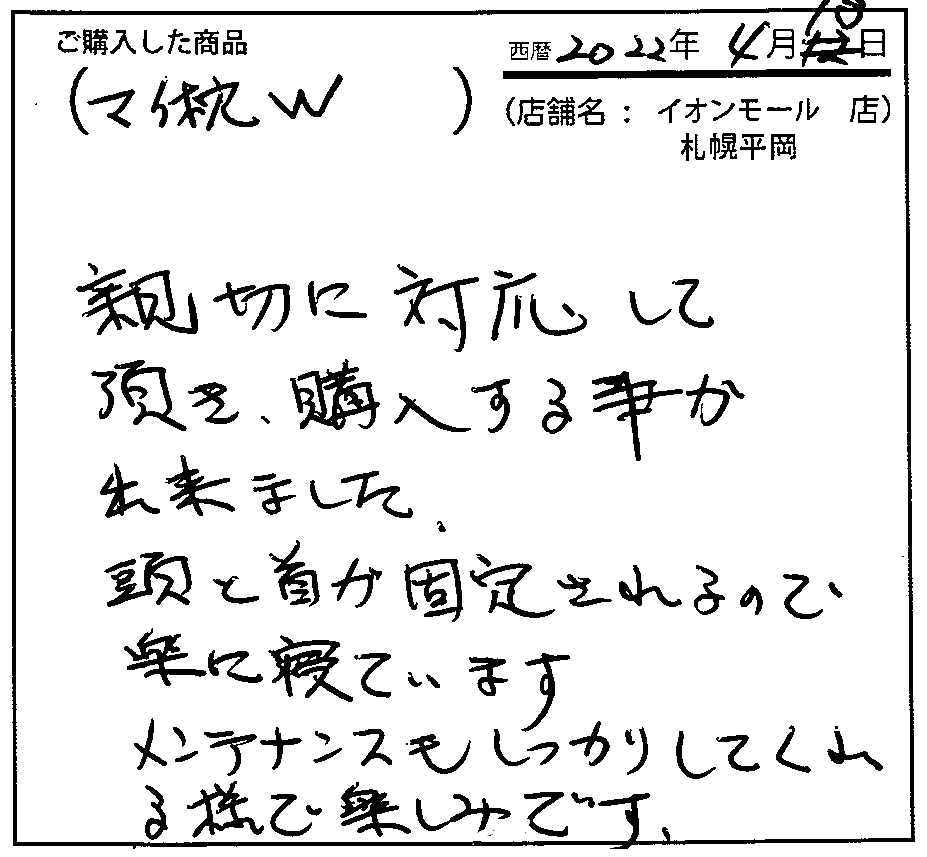 ご購入した商品
西暦2022年 4月10日
(マイ枕W )
(店舗名: イオンモール 店)
札幌平岡
親切に対応して
頂き、購入する事が
出来ました.
頭と首が固定されるので
楽に寝ています
メンテナンスもしっかりしてくれ
る様で楽しみです.